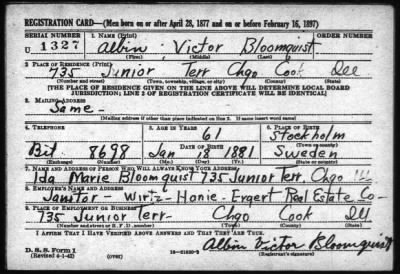 REGISTRATION CARD—(Men born on or after April 28, 1877 and on or before February 16, 1897)
SERIAL NUMBER 1. NAME (Print) ORDER NUMBER
U 1327 Albin Victor Bloomquist
(First) (Middle) (Last)
2. PLACE OF RESIDENCE (Print)
735 Junior Terr Chgo Cook Ill
(Number and street) (Town, township, village, or city) (County) (State)
[THE PLACE OF RESIDENCE GIVEN ON THE LINE ABOVE WILL DETERMINE LOCAL BOARD
JURISDICTION; LINE 2 OF REGISTRATION CERTIFICATE WILL BE IDENTICAL]
3. MAILING ADDRESS
Same -
[Mailing address if other than place indicated on line 2. If same insert word same]
4. TELEPHONE 5. AGE IN YEARS 6. PLACE OF BIRTH
61 Stockholm
DATE OF BIRTH (Town or county)
Bit. 8698 Jan 18 1881 Sweden
(Exchange) (Number) (Mo.) (Day) (Yr.) (State or country)
7. NAME AND ADDRESS OF PERSON WHO WILL ALWAYS KNOW YOUR ADDRESS
Ida Marie Bloomquist 735 Junior Terr. Chgo Ill
8. EMPLOYER'S NAME AND ADDRESS
Janitor - Wirtz-Honie-Ergert Real Estate Co-
9. PLACE OF EMPLOYMENT OR BUSINESS
735 Junior Terr- Chgo Cook Ill
(Number and street or R. F. D. number) (Town) (County) (State)
I AFFIRM THAT I HAVE VERIFIED ABOVE ANSWERS AND THAT THEY ARE TRUE.
D. S. S. Form 1
(Revised 4-1-42) (over) 16-21630-2 Albin Victor Bloomquist